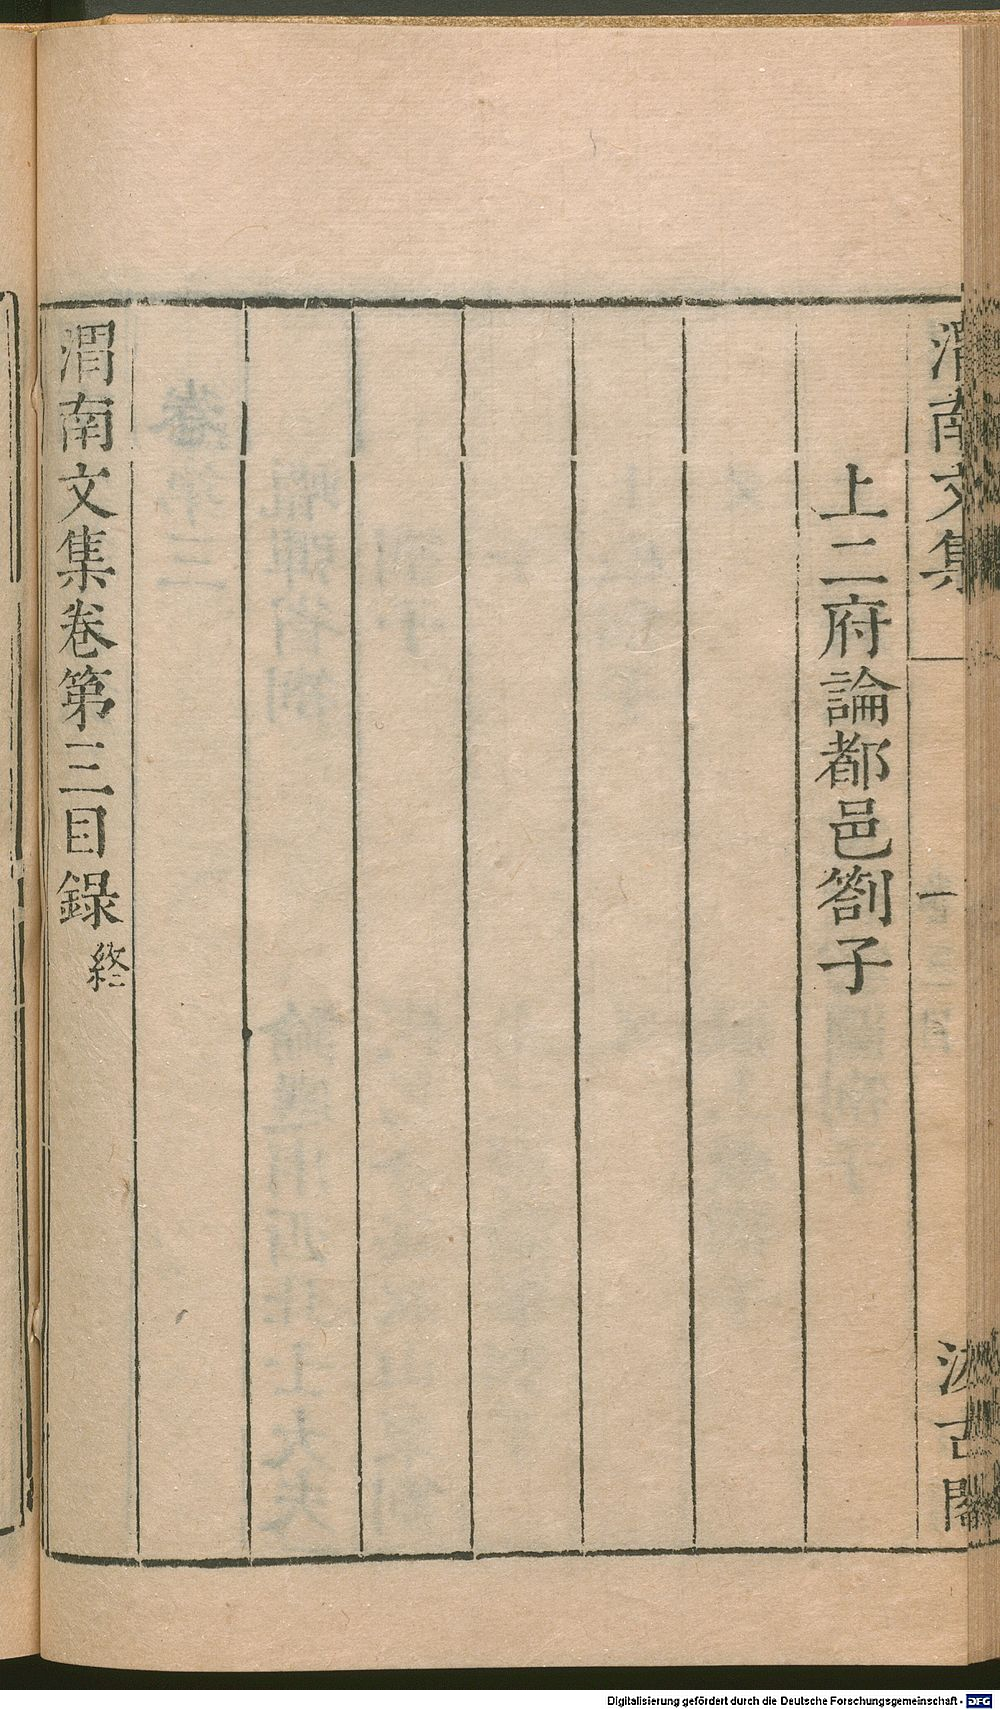 渭南文集
一
汲古閣
上二府論都邑劄子
渭南文集卷第三目錄 終
Digitalisierung gefördert durch die Deutsche Forschungsgemeinschaft - DFG